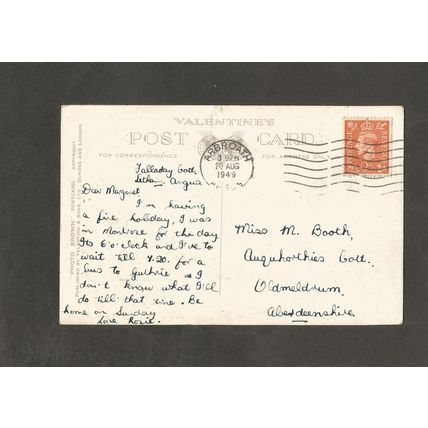 VALENTINE'S
POST CARD
FOR CORRESPONDENCE
FOR ADDRESS ONLY
"PHOTO BROWN" POSTCARD. COPYRIGHT.
ARBROATH
20 AUG
1949
Talladay Cott.
Letham, Angus
Dear Margaret
I'm having
a fine holiday. I was
in Montrose for the day
Its 6 o'clock and I've to
wait till 7.20. for a
bus to Guthrie so I
don't know what I'll
do till that time. Be
home on Sunday
Love Rosie.
Miss M. Booth,
Auquhorthies Cott.
Oldmeldrum,
Aberdeenshire